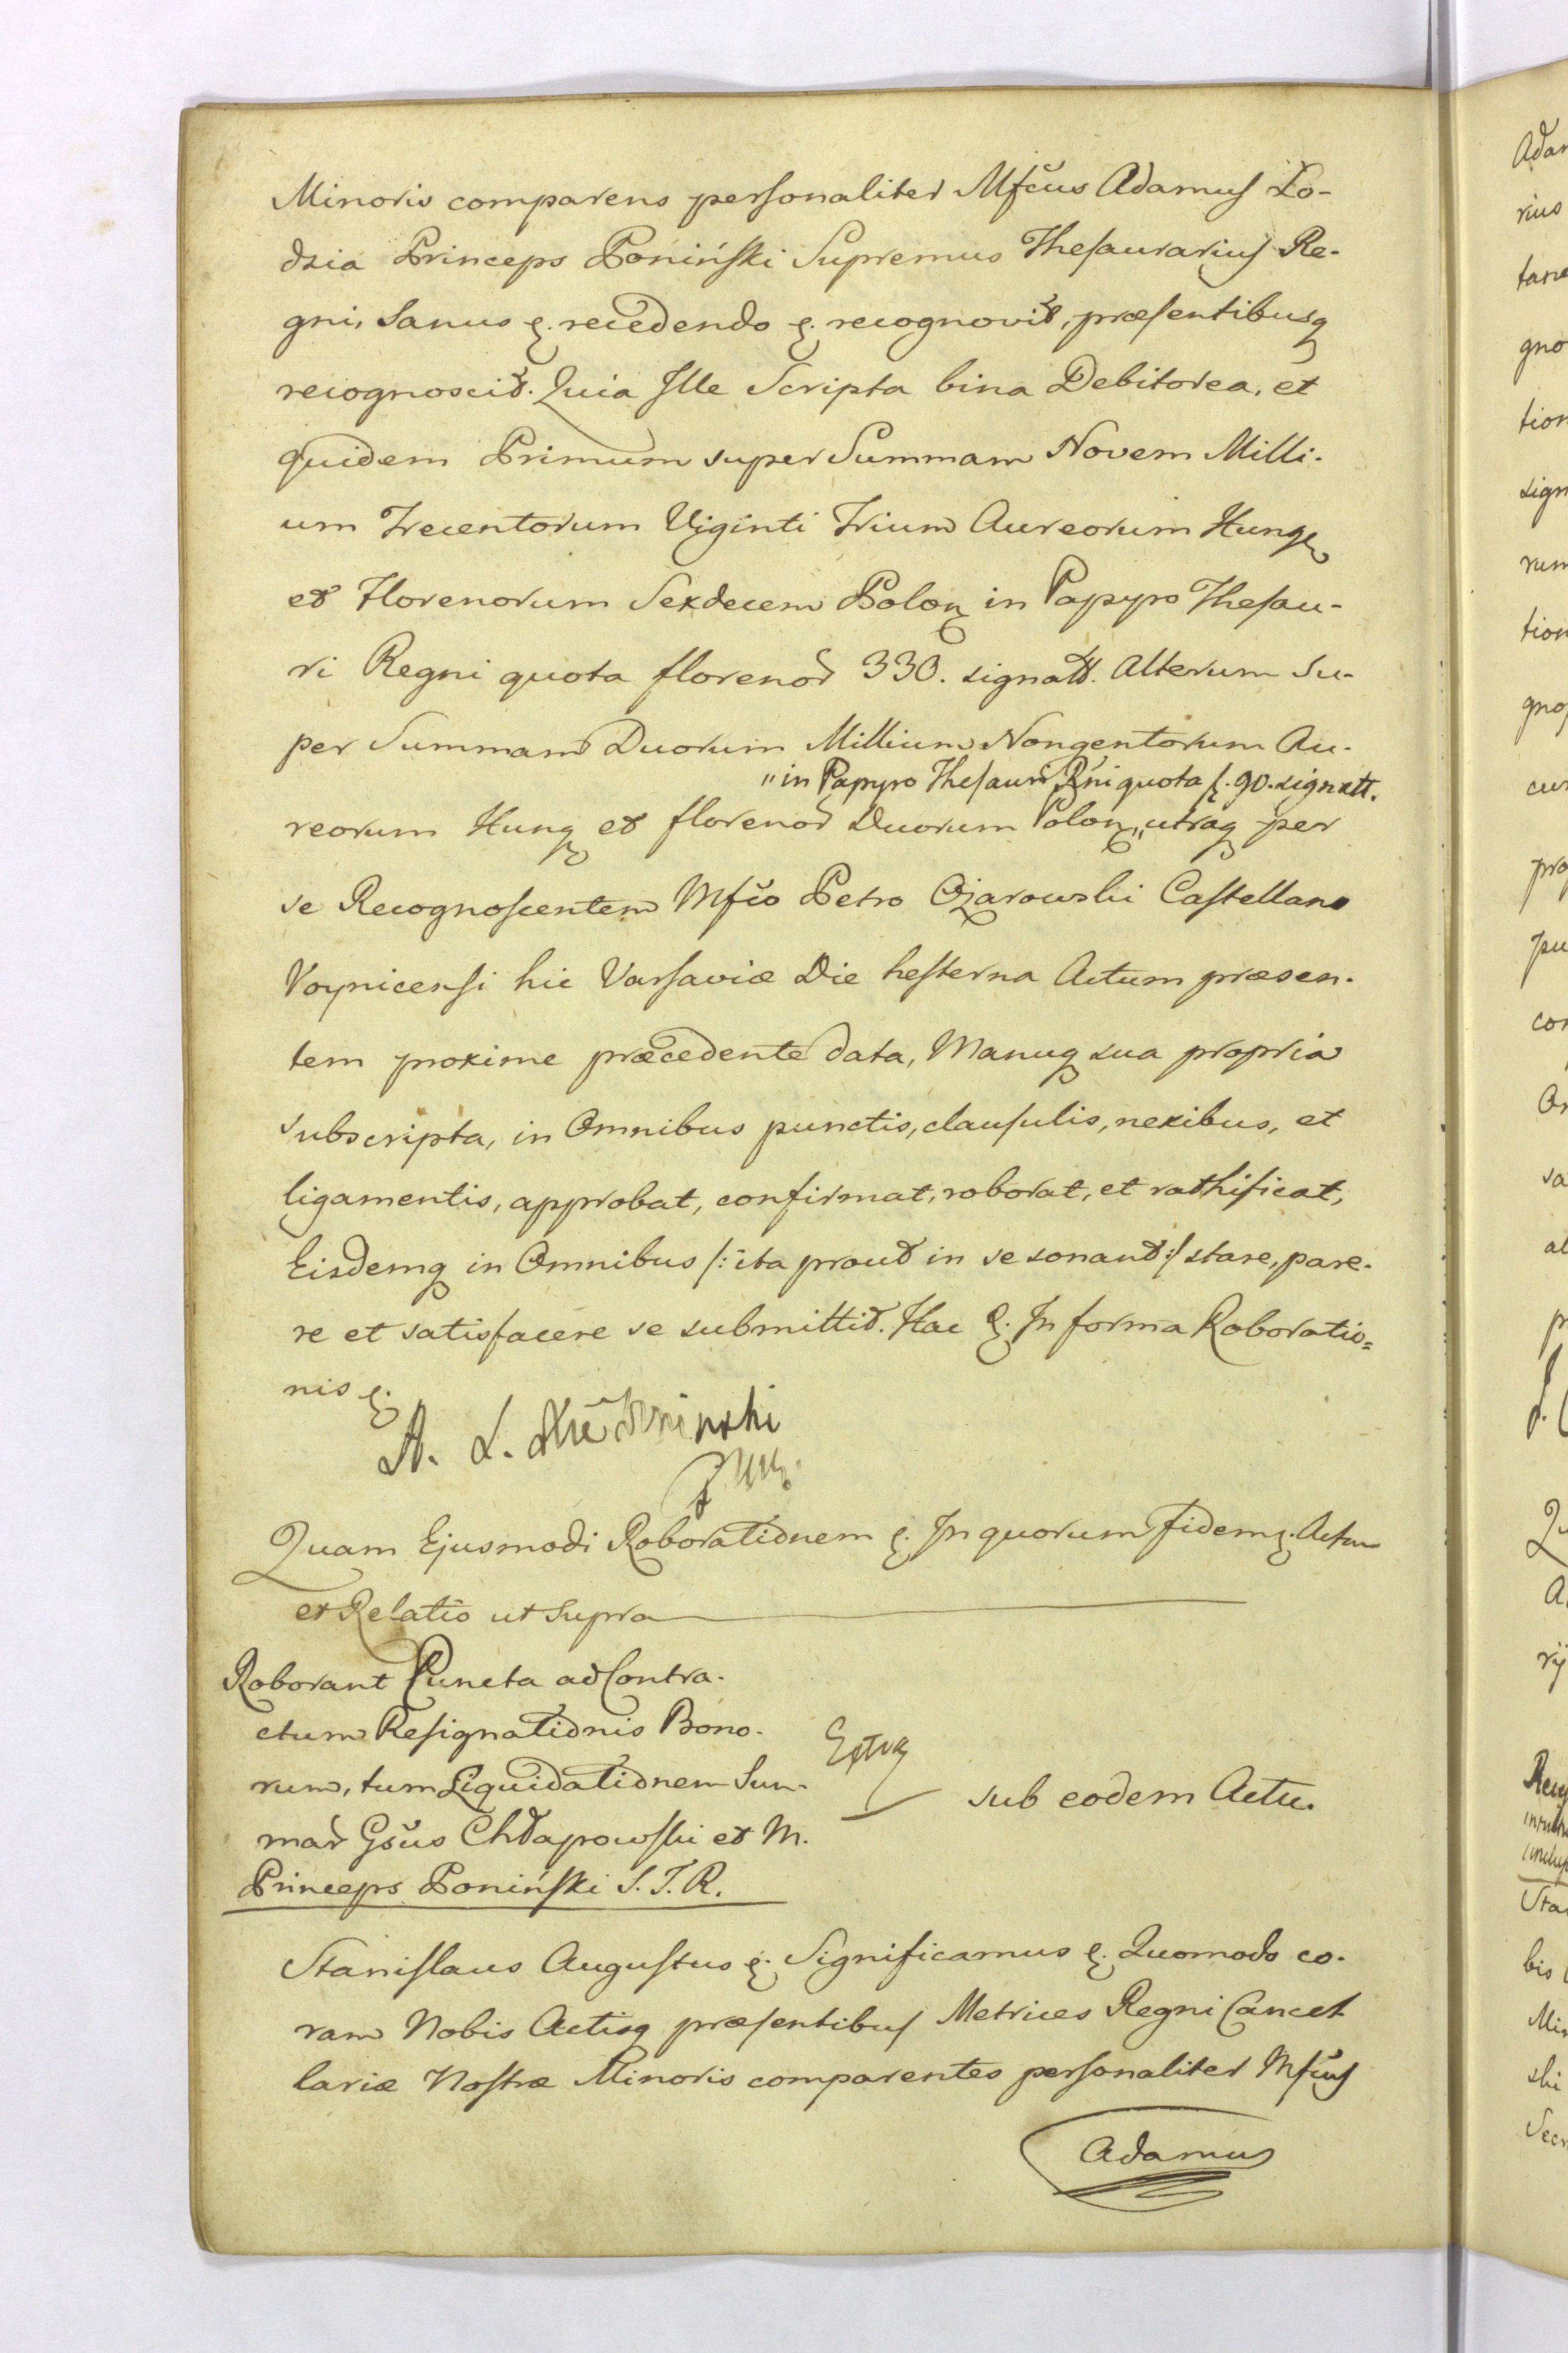 Minoris comparens personaliter Mfcus Adamus Ło-
dzia Princeps Poniński Supremus Thesaurarius Re-
gni, Sanus &. recedendo &. recognovit, præsentibusq
recognoscit. Quia Ille Scripta bina Debitorea, et
quidem Primum super Summam Novem Milli-
um Trecentorum Viginti Trium Aureorum Hung
et Florenorum Sexdecem Polon in Papyro Thesau-
ri Regni quota florenor 330. signatt. Alterum Su-
per Summam Duorum Millium Nongentorum Au-
"in Papyro Thesauri Rni quota f. 90. signatt.
reorum Hung et florenor Duorum Polon" utraq per
se Recognoscentem Mfco Petro Ożarowski Castellano
Voynicensi hic Varsaviæ Die hesterna Actum præsen-
tem proxime præcedente data, Manuq sua propria
subscripta, in Omnibus punctis, clausulis, nexibus, et
ligamentis, approbat, confirmat, roborat, et rathificat,
Eisdemq in Omnibus /: ita prout in se sonant :/ stare, pare-
re et satisfacere se submittit. Hac &. In forma Roboratio=
nis &.
A. L. Poninski
Quam Ejusmodi Roborationem &. In quorum fidem &. Actum
et Relatio ut Supra
Roborant Puncta ad Contra-
ctum Resignationis Bono-
rum, tum Liquidationem Sum-
mar Gsus Chłapowski et M.
Princeps Poniński S. T. R.
Extr
sub eodem Actu.
Stanislaus Augustus &. Significamus &. Quomodo co-
ram Nobis Actisq præsentibus Metrices Regni Cancel-
lariæ Nostræ Minoris comparentes personaliter Mfcus
Adamus